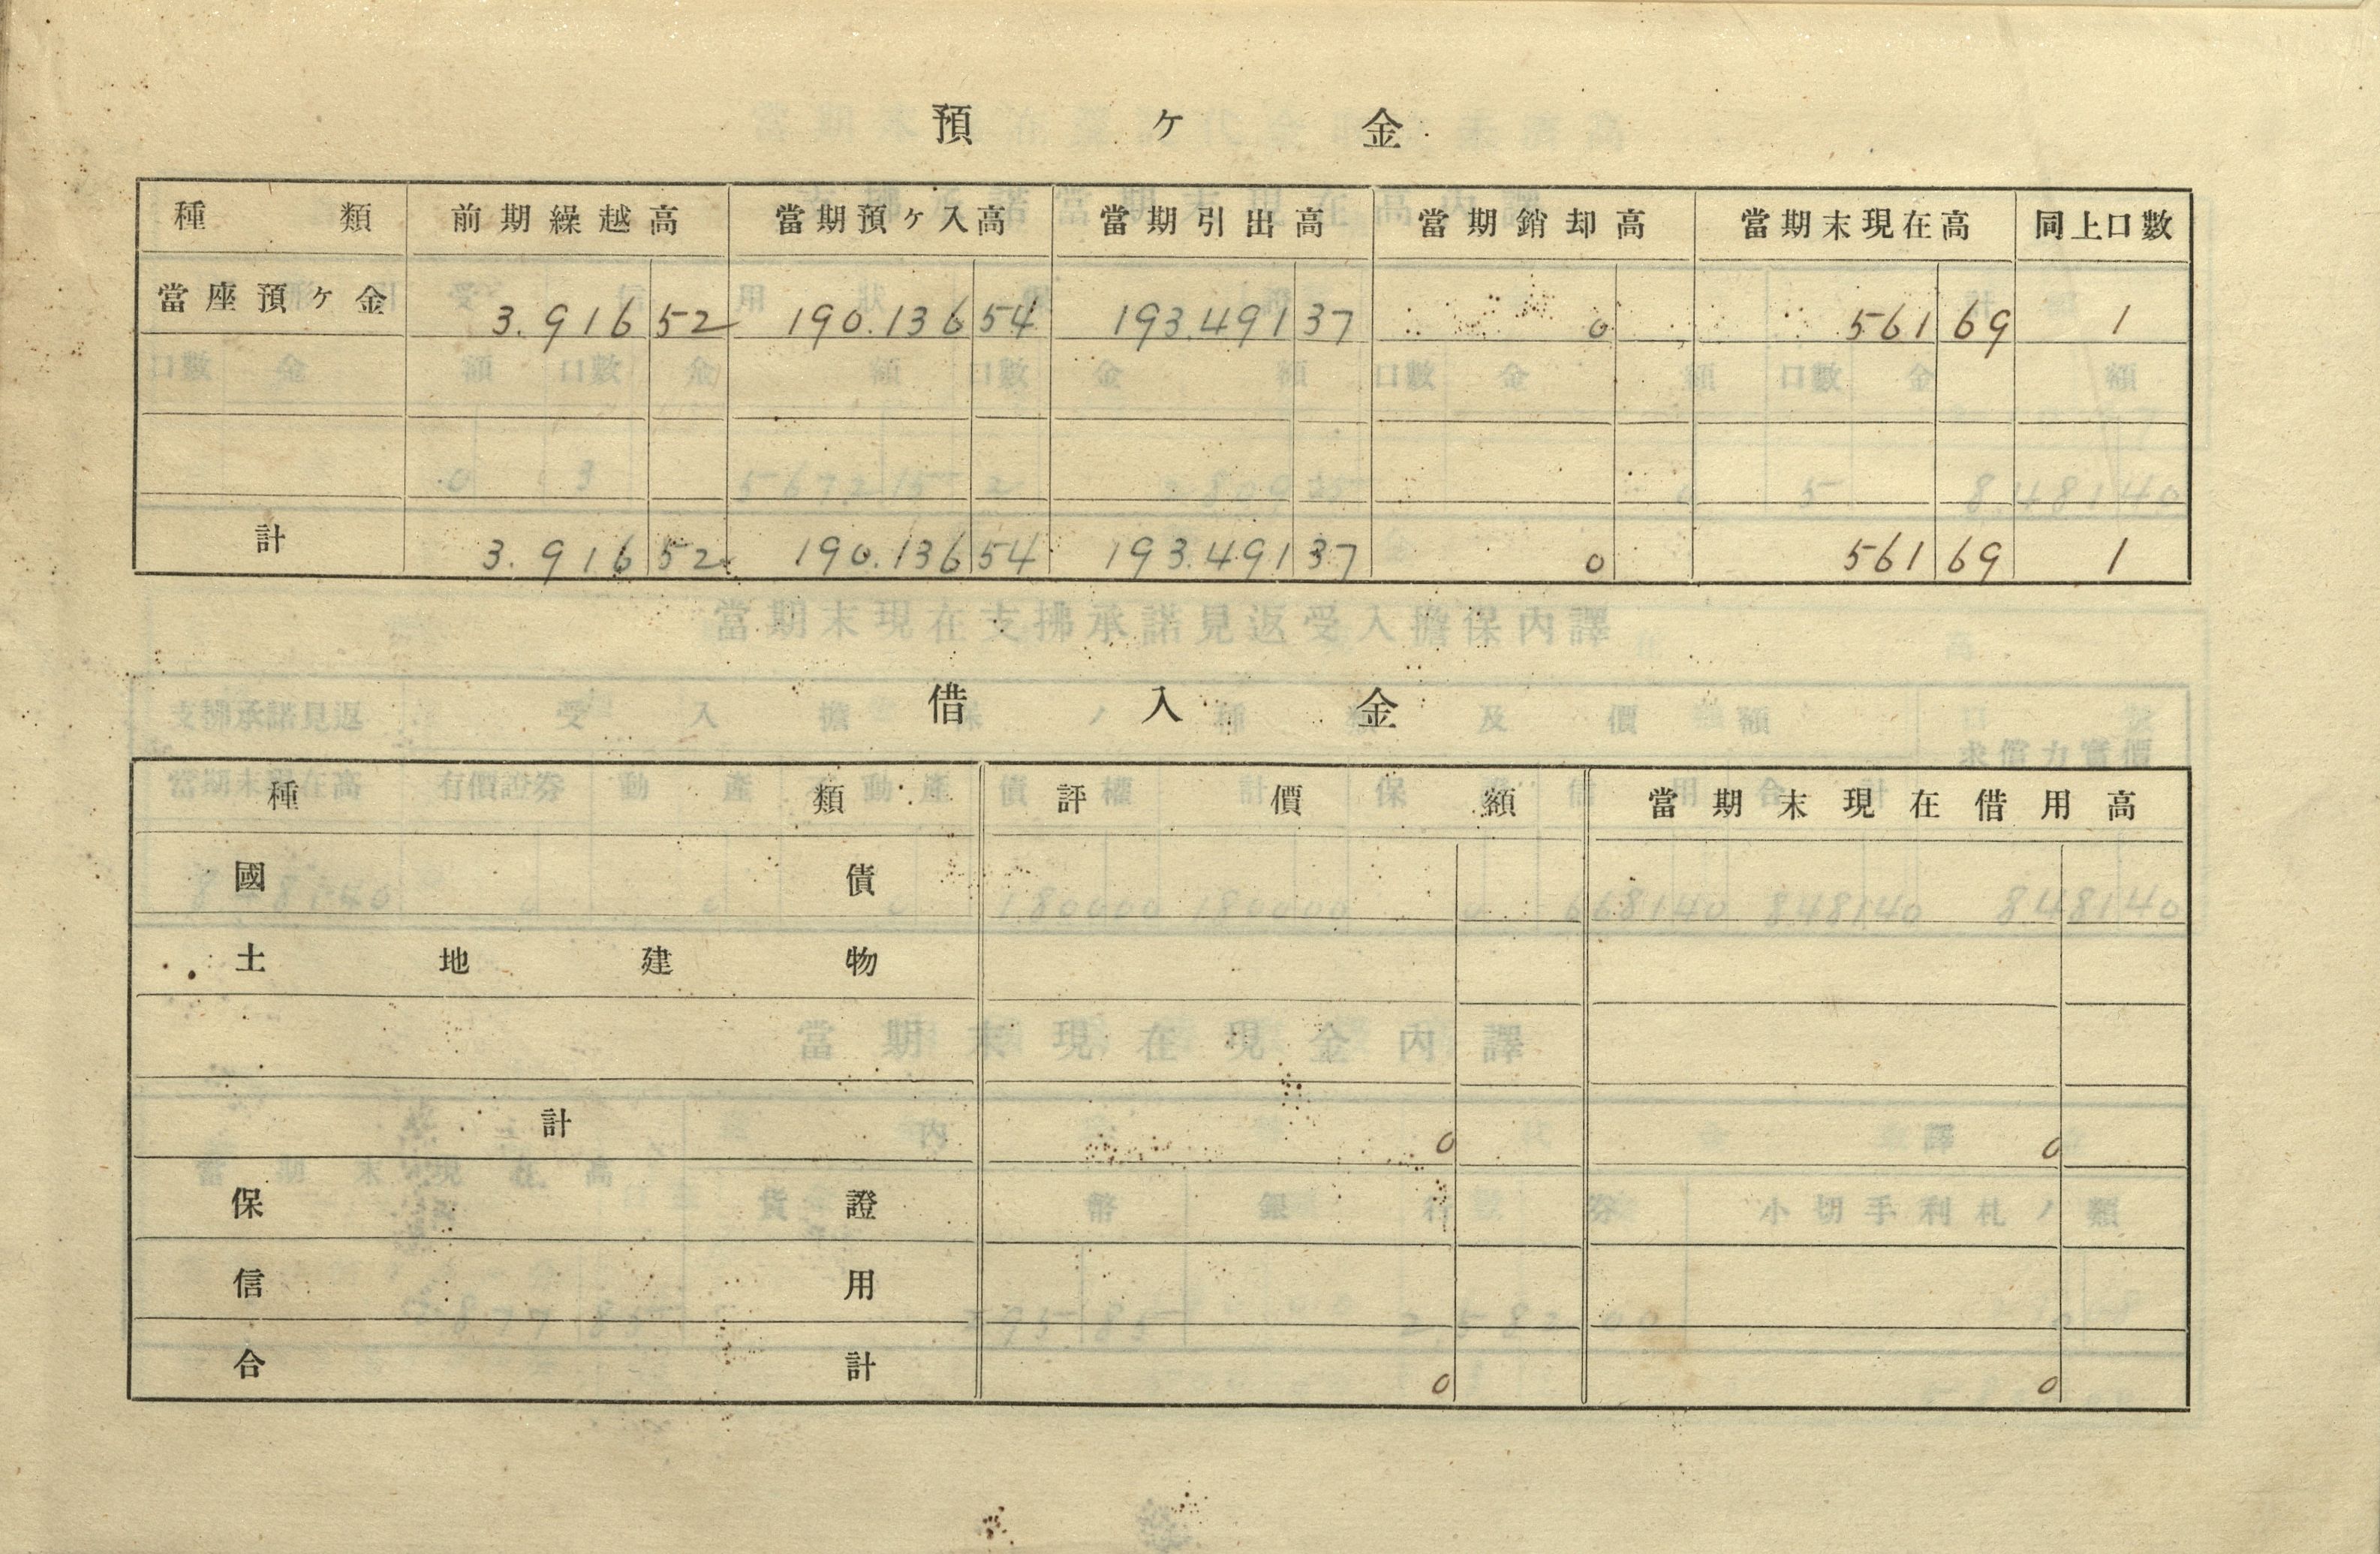 預ヶ金
種類 前期繰越高 當期預ヶ入高 當期引出高 當期銷却高 當期末現在高 同上口數
當座預ヶ金 3.916 52 190.136 54 193.491 37 0 561 69 1
計 3.916 52 190.136 54 193.491 37 0 561 69 1
借入金
種類 評價額 當期末現在借用高
國債
土地建物
計 0 0
保證
信用
合計 0 0